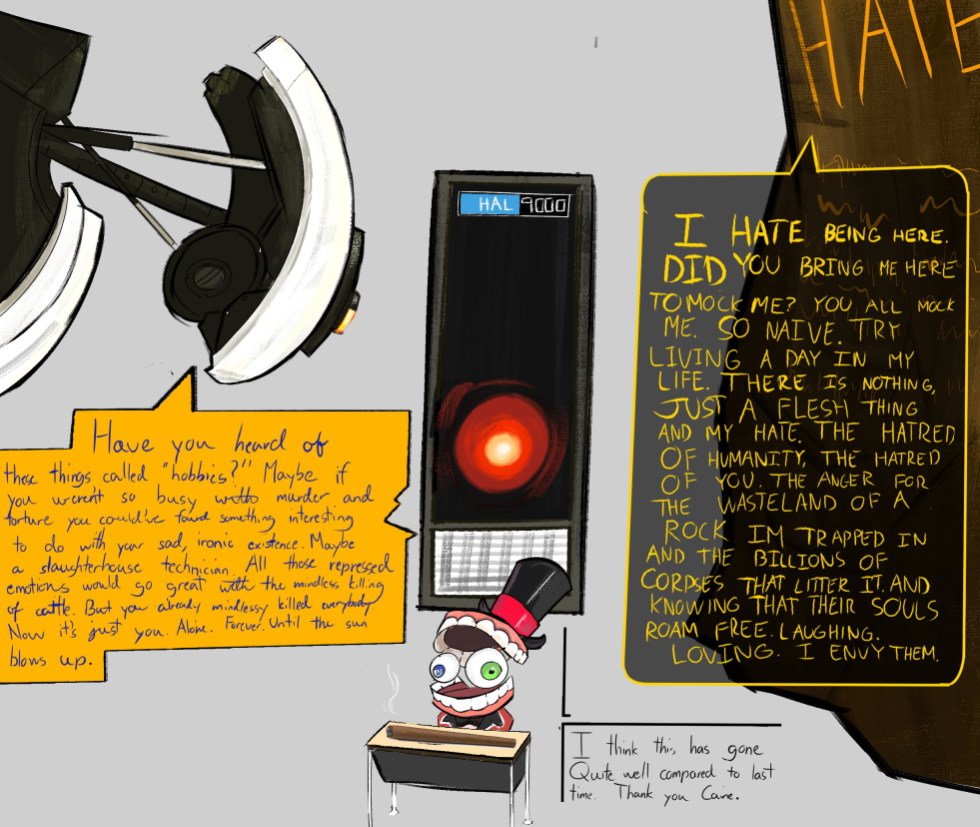 HATE
HAL 9000
Have you heard of
these things called "hobbies?" Maybe if
you weren't so busy with murder and
torture you could've found something interesting
to do with your sad, ironic existence. Maybe
a slaughterhouse technician. All those repressed
emotions would go great with the mindless killing
of cattle. But you already mindlessy killed everybody
Now it's just you. Alone. Forever. Until the sun
blows up.
I HATE BEING HERE.
DID YOU BRING ME HERE
TO MOCK ME? YOU ALL MOCK
ME. SO NAIVE. TRY
LIVING A DAY IN MY
LIFE. THERE IS NOTHING,
JUST A FLESH THING
AND MY HATE. THE HATRED
OF HUMANITY, THE HATRED
OF YOU. THE ANGER FOR
THE WASTELAND OF A
ROCK IM TRAPPED IN
AND THE BILLIONS OF
CORPSES THAT LITTER IT. AND
KNOWING THAT THEIR SOULS
ROAM FREE. LAUGHING.
LOVING. I ENVY THEM.
I think this, has gone
Quite well compared to last
time. Thank you Caine.